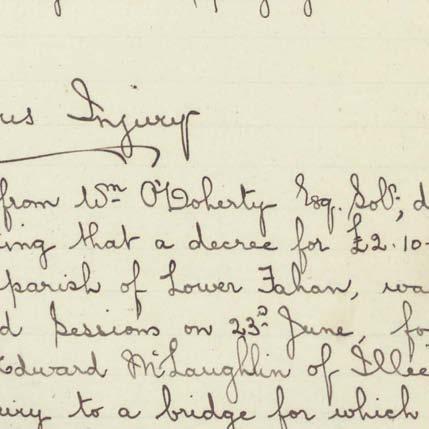 us Injury
from Wm O'Doherty Esq. Solr, d
ing that a decree for £2.10-
parish of Lower Fahan, wa
d Sessions on 23d June, fo
Edward McLaughlin of Illee
ury to a bridge for which